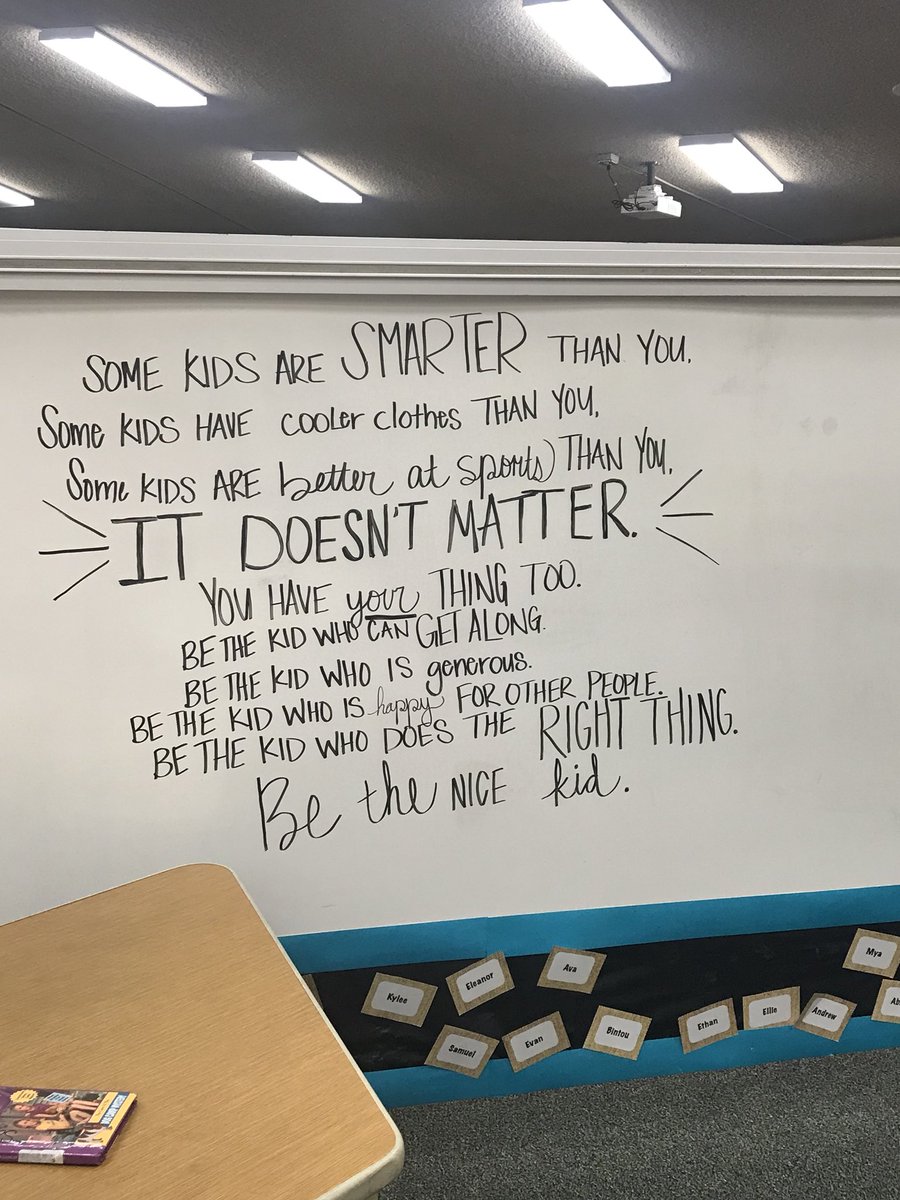 SOME KIDS ARE SMARTER THAN YOU.
Some KIDS HAVE cooler clothes THAN YOU.
Some KIDS ARE better at sports THAN YOU.
IT DOESN'T MATTER.
YOU HAVE your THING TOO.
BE THE KID WHO CAN GET ALONG.
BE THE KID WHO IS generous.
BE THE KID WHO IS happy FOR OTHER PEOPLE.
BE THE KID WHO DOES THE RIGHT THING.
Be the NICE kid.
Kylee
Eleanor
Ava
Mya
Samuel
Evan
Bintou
Ethan
Ellie
Andrew